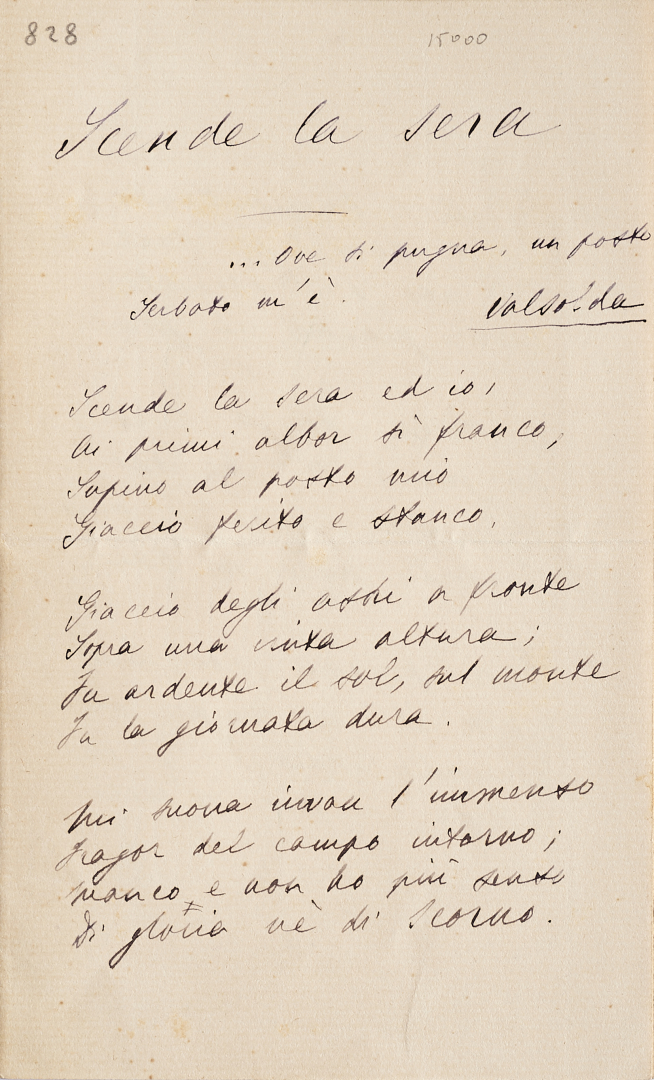 828
15000
Scende la sera
... Ove si pugna, un posto
Serbato m'è.
Valsolda
Scende la sera ed io,
Ai primi albor sì franco,
Supino al posto mio
Giaccio ferito e stanco.
Giaccio degli astri a fronte
Sopra una vinta altura;
Fu ardente il sol, sul monte
Fu la giornata dura.
Mi suona invan l'immenso
Fragor del campo intorno;
Manco e non ho più senso
Di gloria nè di scorno.